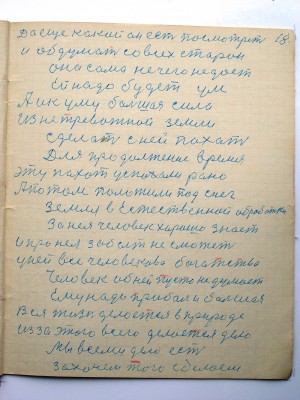 Да еще какой он есть посмотрит 18.
и обдумат со всих старон
она сама нечего недоет
Ей надо будет ум
А ик уму балшая сила
Из нетревожной земли
зделат с ней пахат
Для продолжение время
эту пахот успахали рано
Апотом положим под снег
Земля в Естественной обработки
За нея человек харашо знает
и про нея забыт не сможет
у ней все человеково богатство
Человек об ней пусто не думает
Ему надо прибыл балшая
Вся жизнь делается в природе
Из за этого всего делается дело
Мы всему дело ест
Захочем того сделоем